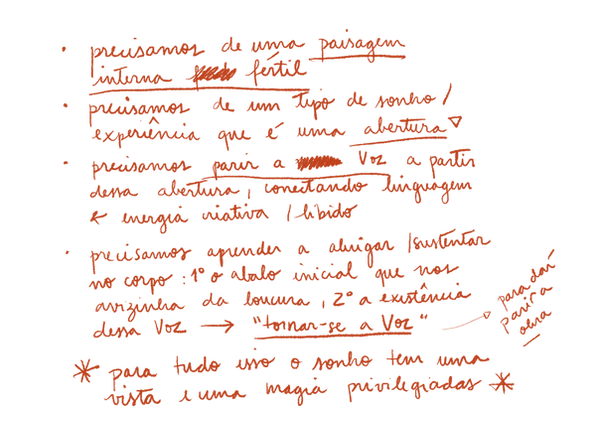 • precisamos de uma paisagem
interna fértil
• precisamos de um tipo de sonho /
experiência que é uma abertura
• precisamos parir a Voz a partir
dessa abertura, conectando linguagem
e energia criativa / libido
• precisamos aprender a abrigar / sustentar
no corpo: 1º o abalo inicial que nos
avizinha da loucura, 2º a existência
dessa Voz → "tornar-se a Voz" →
para daí
parir a
obra
* para tudo isso o sonho tem uma
vista e uma magia privilegiadas *